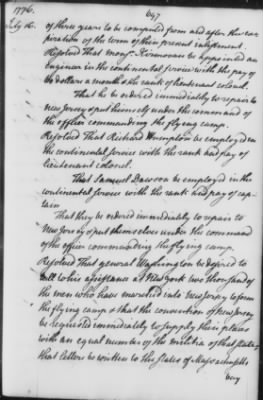 1776.
697
July 16.
of three years to be computed from and after the ex-
piration of the term of their present inlistment.
Resolved That monsr. Dermovan be appointed an
Engineer in the continental service with the pay of
60 dollars a month & the rank of lieutenant colonel.
That he be ordered immediately to repair to
new Jersey & put himself under the command of
the officer commanding the flying camp.
Resolved That Richard Humpton be employed in
the continental service with the rank and pay of
lieutenant colonel.
That Samuel Dawson be employed in the
continental service with the rank and pay of cap-
tain
That they be ordered immediately to repair to
New Jersey & put themselves under the command
of the officer commanding the flying camp.
Resolved That general Washington be desired to
call to his assistance at New York two thousand of
the men who have marched into new Jersey to form
the flying camp & that the convention of New Jersey
be requested immediately to supply their places
with an equal number of the militia of that State,
that letters be written to the States of Massachusetts
bay